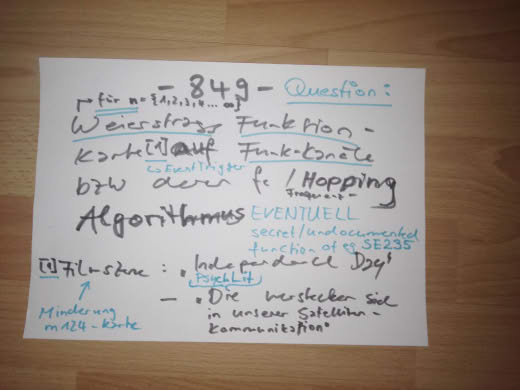 - 849 - Question:
für n = {1,2,3,4... ∞}
Weierstrass Funktion-
Karte [1] auf Funk-Kanäle
EventTrigger
bzw deren fc / Hopping
Frequent-
Algorithmus EVENTUELL
secret/undocumented
function of eg SE235
[1] Filmszene : • Independence Day
PsychLit
Minderung
m124-Karte
— • Die verstecken sich
in unserer Satelliten-
kommunikation"